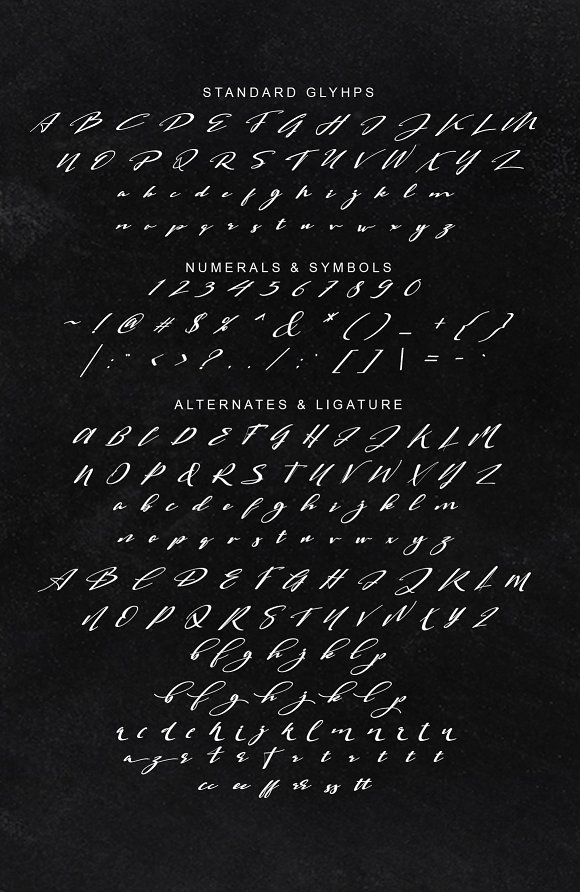 STANDARD GLYHPS
A B C D E F G H I J K L M
N O P Q R S T U V W X Y Z
a b c d e f g h i j k l m
n o p q r s t u v w x y z
NUMERALS & SYMBOLS
1 2 3 4 5 6 7 8 9 0
~ ! @ # $ % ^ & * ( ) _ + { }
| : " < > ? . . / ; ' [ ] \ = - `
ALTERNATES & LIGATURE
A B C D E F G H I J K L M
N O P Q R S T U V W X Y Z
a b c d e f g h i j k l m
n o p q r s t u v w x y z
A B C D E F G H I J K L M
N O P Q R S T U V W X Y Z
b f g h j k l p
b f g h j k l p
cc ee ff rr ss tt